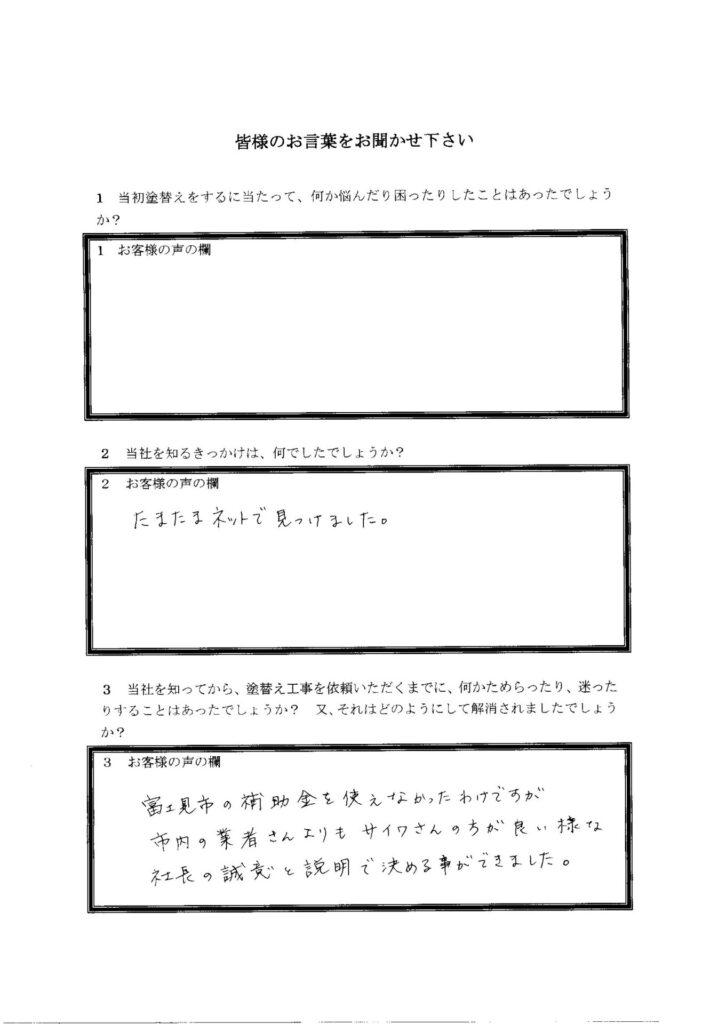 皆様のお言葉をお聞かせ下さい
1　当初塗替えをするに当たって、何か悩んだり困ったりしたことはあったでしょう
か？
1　お客様の声の欄
2　当社を知るきっかけは、何でしたでしょうか？
2　お客様の声の欄
たまたまネットで見つけました。
3　当社を知ってから、塗替え工事を依頼いただくまでに、何かためらったり、迷った
りすることはあったでしょうか？　又、それはどのようにして解消されましたでしょう
か？
3　お客様の声の欄
富士見市の補助金を使えなかったわけですが
市内の業者さんよりもサイワさんの方が良い様な
社長の誠意と説明で決める事ができました。